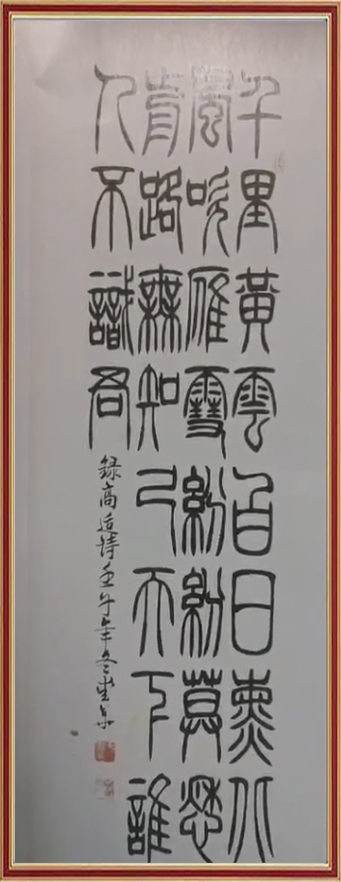 千里黃雲白日熏北
風吹雁雪紛紛莫愁
前路無知己天下誰
人不識君
錄高适詩壬午年冬